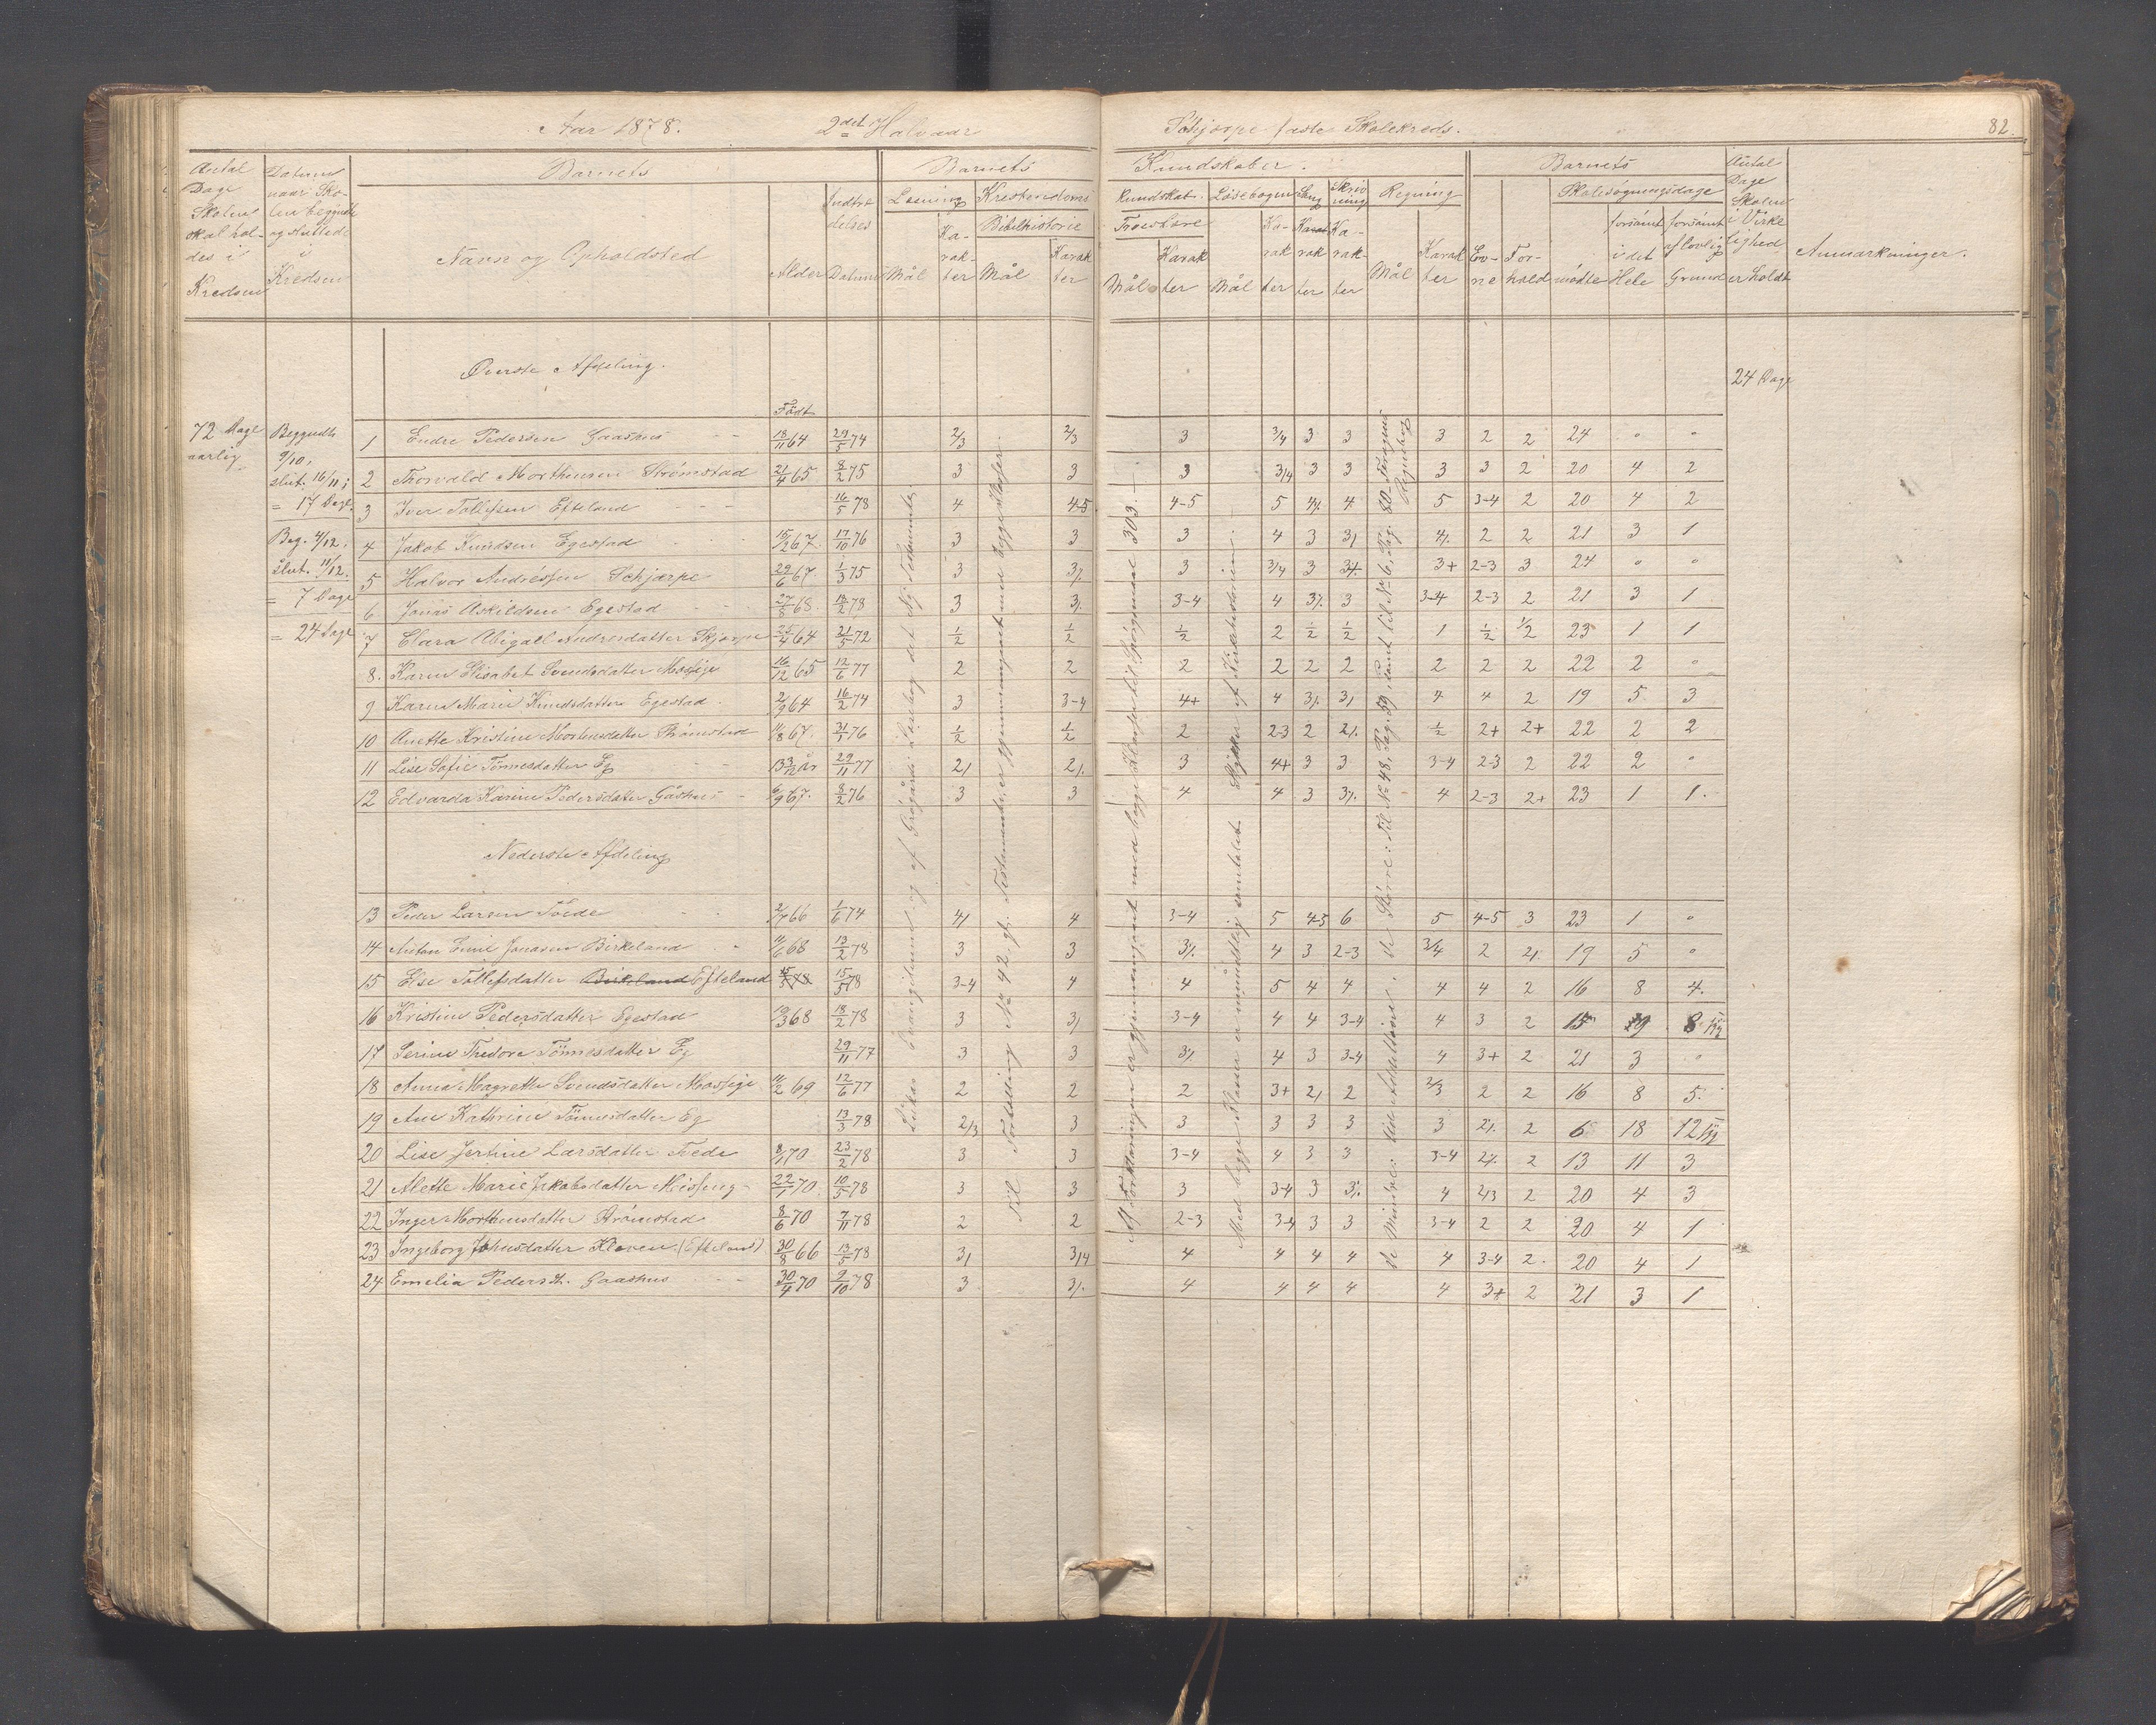 Aar 1878. 2det Halvaar Schjørpe faste Skolekreds. 82.
Antal Dage Skolen skal holdes i Kredsen
Datum naar Skolen begyndte og sluttede i Kredsen
Barnets
Navn og Opholdsted
Alder
Indtrædelses Datum
Barnets Kundskaber.
Læsning Mål Karakter
Kristendoms kundskab.
Bibelhistorie Mål Karakter
Troeslære Mål Karakter
Læsebogen Mål Karakter
Sang Karakter
Skrivning Karakter
Regning Mål Karakter
Barnets
Evne
Forhold
Skolesøgningsdage
mødte
forsømt i det Hele
forsømt af lovlig Grund
Antal Dage Skolen i Virkelighed er holdt
Anmærkninger.
Øverste Afdeling.
24 Dage
Født
72 Dage aarlig
Begyndte 9/10,
slut. 16/11;
= 17 Dage.
Beg. 4/12,
slut. 11/12.
= 7 Dage
= 24 Dage
1 Endre Pedersen Gaashus 18/11 64 29/5 74 2/3 2/3 3 3/4 3 3 3 2 2 24 " "
2 Thorvald Morthensen Strømstad 21/4 65 8/2 75 3 3 3 3/4 3 3 3 3 2 20 4 2
3 Iver Tollefsen Efteland 16/5 78 4 4-5 4-5 5 4/. 4 5 3-4 2 20 4 2
4 Jakob Knudsen Egestad 15/2 67. 17/10 76 3 3 3 4 3 3/ 4/. 2 2 21 3 1
5 Halvor Andréssen Schjærpe 29/6 67. 1/3 75 3 3/. 3 3/4 3 3/. 3+ 2-3 3 24 " "
6 Jonas Askildsen Egestad 27/5 68. 18/2 78 3 3/. 3-4 4 3/. 3 3-4 2-3 2 21 3 1
7 Clara Abigael Andresdatter Skjørpe 25/4 64 21/5 72 1/2 1/2 1/2 2 1/2 1/2 1 1/2 1/2 23 1 1
8. Karen Elisabet Svendsdatter Mossige 16/12 65 12/6 77 2 2 2 2 2 2 2 2 2 22 2 "
9 Karen Marie Knudsdatter Egestad 2/9 64 16/2 74 3 3-4 4+ 4 3/. 3/ 4 4 2 19 5 3
10 Anette Kristine Mortensdatter Strømstad 11/8 67. 31/1 76 1/2 1/2 2 2-3 2 2/. 1/2 2+ 2+ 22 2 2
11 Lise Sofie Tønnesdatter Eg 13 3/12 år 29/11 77 2/ 2/. 3 4+ 3 3 3-4 2-3 2 22 2 "
12 Edvarda Karine Pedersdatter Gåshus 6/9 67. 8/2 76 3 3 4 4 3 3/. 4 2-3 2+ 23 1 1.
Nederste Afdeling
13 Peder Larsen Tvede 2/4 66 1/6 74 4/ 4 3-4 5 4-5 6 5 4-5 3 23 1 "
14 Anton Emil Jonasen Birkeland 11/6 68 13/2 78 3 3 3/. 4 3 2-3 3/4 2 2/. 19 5 "
15 Else Tollefsdatter Birkeland Efteland 15/5 78 15/5 78 3-4 4 4 5 4 4 4 4 2 16 8 4.
16 Kristine Pedersdatter Egestad 19/3 68 18/2 78 3 3/ 3-4 4 4 3-4 4 3 2 15 9 8
17 Serine Thedora Tønnesdatter Eg 29/11 77 3 3 3/. 4 3 3-4 4 3+ 2 21 3 "
18 Anna Magrethe Svendsdatter Mossige 11/2 69 12/6 77 2 2 2 3+ 2/ 2 2/3 2 2 16 8 5.
19 Ane Kathrine Tønnesdatter Eg 13/3 78 2/3 3 3 3 3 3 3 2/. 2 6 18 12
20 Lise Jertine Larsdatter Tvede 8/1 70 23/2 78 3 3 3-4 4 3 3 3-4 2/. 2 13 11 3
21 Alette Marie Jakobsdatter Missing 22/1 70 10/5 78 3 3 3 3-4 3 3/. 4 2/3 2 20 4 3
22 Inger Morthensdatter Strømstad 8/6 70 7/11 78 2 2 2-3 3-4 3 3 3-4 2 2 20 4 1
23 Ingeborg Johnsdatter Kleven (Efteland) 30/8 66 13/5 78 3/ 3/4 4 4 4 4 4 3-4 2. 20 4 1
24 Emelia Pedersdt. Gaashus 30/4 70 9/10 78 3 3/. 4 4 4 4 4 3+ 2 21 3 1
Lukas Evangelium og af Grøgårds Læsebog det Ny Testamente.
Til Fortælling No 42 gl. Testamente, er gjennemgaaet med begge Klasser.
Af Forklaringen er gjennemgaaet med begge Klasser til Spørgsmaal 303. —
Med begge Klasser er mundtlig samtalet Stykker af Kirkehistorien. —
de Mindre: , de Større: Til No 48, Pag. 59, samt til No 6, Pag. 80 Regnebog